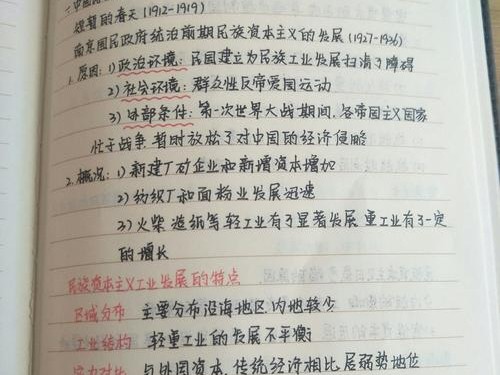 短暂的春天(1912-1919)
南京国民政府统治前期民族资本主义的发展(1927-1936)
1.原因:1)政治环境:民国建立为民族工业发展扫清了障碍
2)社会环境:群众性反帝爱国运动
3)外部条件:第一次世界大战期间,各帝国主义国家
忙于战争暂时放松了对中国的经济侵略
2.概况:1)新建厂矿企业和新增资本增加
2)纺织厂和面粉业发展迅速
3)火柴 造纸等轻工业有了显著发展 重工业有了一定
的增长
民族资本主义工业发展的特点
区域分布 主要分布沿海地区 内地较少
工业结构 轻重工业的发展不平衡
与外国资本,传统经济相比 居弱势地位